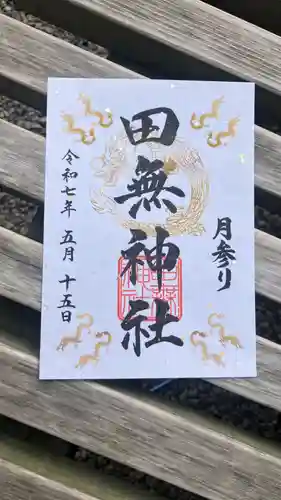 月参り
田無神社
令和七年 五月 十五日